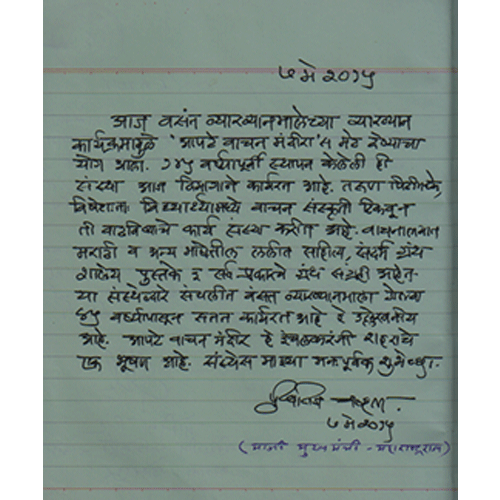 ७ मे २०१५
आज वसंत व्याख्यानमालेच्या व्याख्यान
कार्यक्रमामुळे 'आपटे वाचन मंदीरा'स भेट देण्याचा
योग आला. १४५ वर्षापूर्वी स्थापन केलेली ही
संस्था आज कार्यरत आहे. तरुण पिढीमध्ये,
विशेषतः विद्यार्थ्यामध्ये वाचन संस्कृती टिकवून
ती वाढविण्याचे कार्य संस्था करीत आहे. वाचनालयात
मराठी व अन्य भाषेतील ललीत साहित्य, संदर्भ ग्रंथ
शालेय पुस्तके व सर्व प्रकारचे ग्रंथ संग्रही आहेत.
या संस्थेद्वारे संचलीत वसंत व्याख्यानमाला गेल्या
४५ वर्षापासून सतत कार्यरत आहे हे उल्लेखनीय
आहे. आपटे वाचन मंदीर हे इचलकरंजी शहराचे
एक भूषण आहे. संस्थेस माझ्या मनःपूर्वक शुभेच्छा.
७ मे २०१५
(माजी मुख्यमंत्री - महाराष्ट्र राज्य)